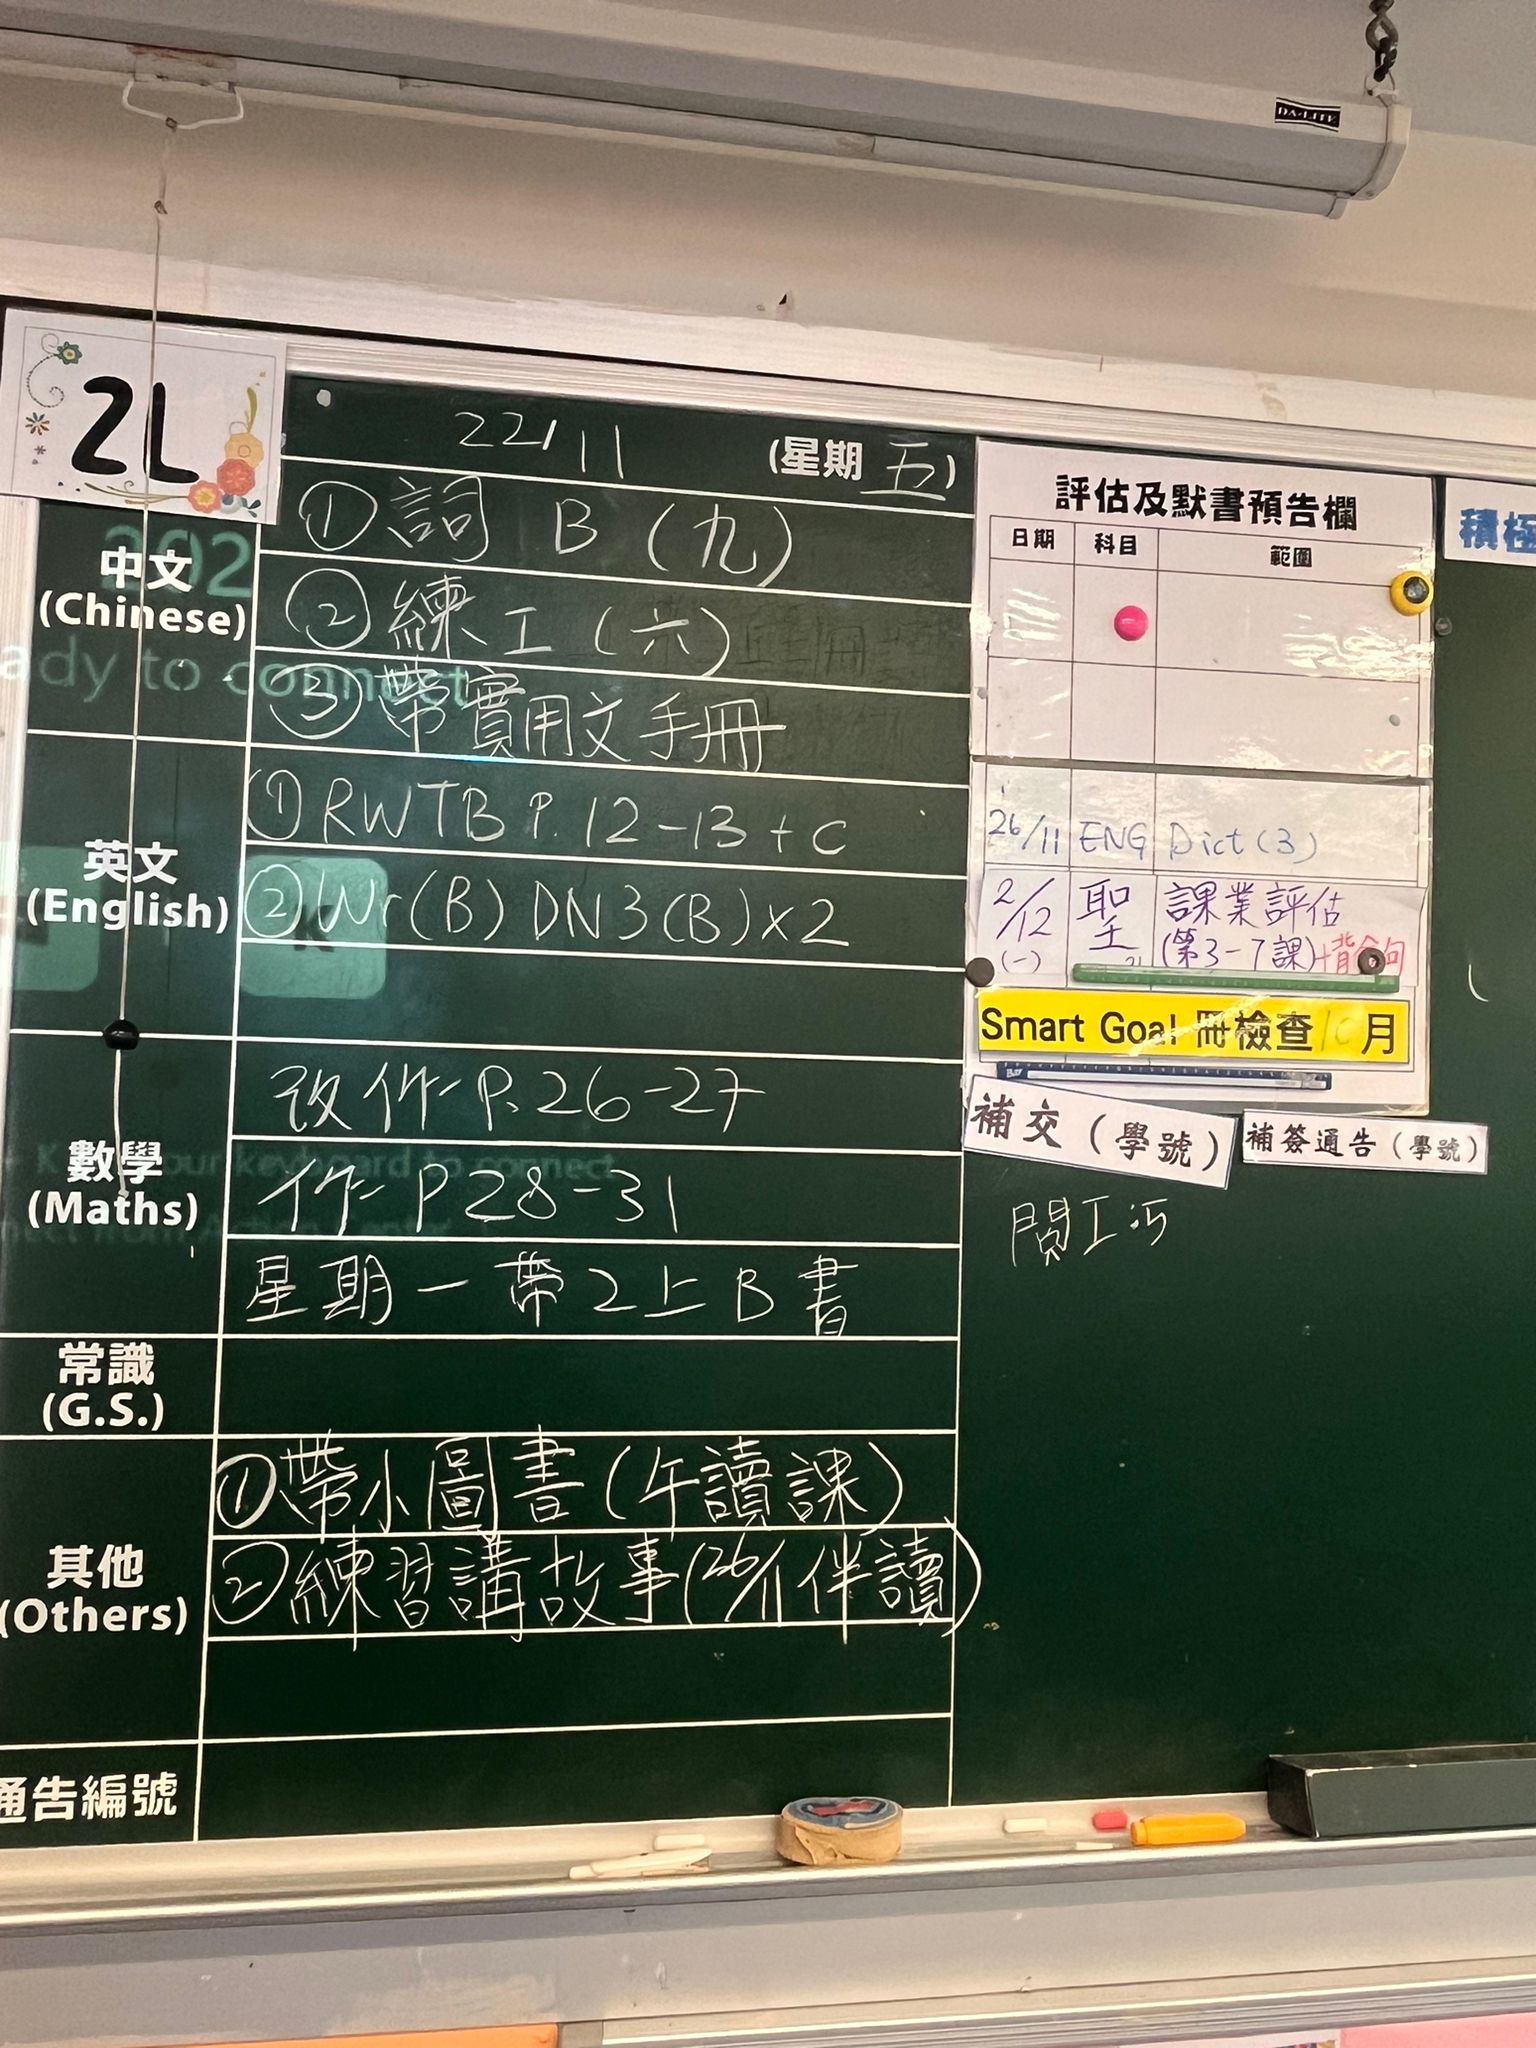 DA-LITE
2L
22/11 (星期 五)
中文
(Chinese)
① 詞 B (九)
② 練工 (六)
③ 帶實用文手冊
英文
(English)
① RWTB P.12-13 + C
② Wr(B) DN3(B)x2
數學
(Maths)
改作 P.26-27
作 P28-31
星期一帶2上B書
常識
(G.S.)
其他
(Others)
① 帶小圖書 (午讀課)
② 練習講故事 (26/11 伴讀)
通告編號
評估及默書預告欄
日期 科目 範圍
26/11 ENG Dict (3)
2/12 (一) 聖 課業評估
(第3-7課)+背金句
Smart Goal 冊檢查 10 月
補交 (學號)
補簽通告 (學號)
積極
ady to connect